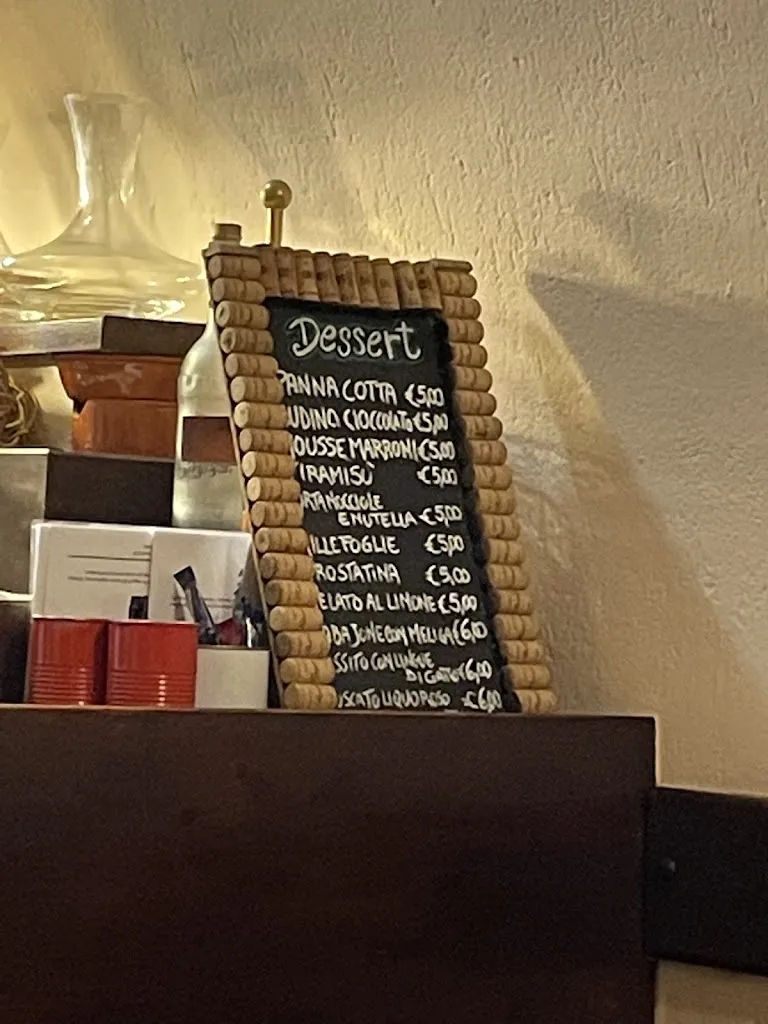 Dessert
PANNA COTTA €5,00
UDINO CIOCCOLATO €5,00
OUSSE MARRONI €5,00
IRAMISÙ €5,00
RTA NOCCIOLE
E NUTELLA €5,00
ILLEFOGLIE €5,00
ROSTATINA €5,00
ELATO AL LIMONE €5,00
CON MELIGA €6,00
SSITO CON LINGUE
DI GATTO €6,00
OSCATO LIQUOROSO €6,00